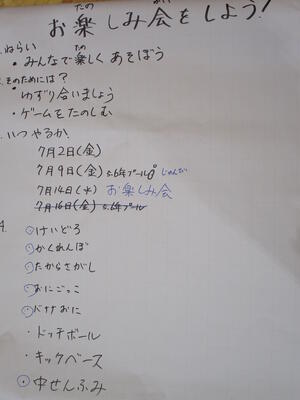 お楽しみ会をしよう!
.ねらい
・みんなで楽しくあそぼう
.そのためには?
・ゆずり合いましょう
・ゲームをたのしむ
.いつやるか
7月2日(金)
7月9日(金) 5.6年プール じゅんび
7月14日(水) お楽しみ会
7月16日(金) 5.6年プール
4.
・けいどろ
・かくれんぼ
・たからさがし
・おにごっこ
・バナナおに
・ドッチボール
・キックベース
・中せんふみ